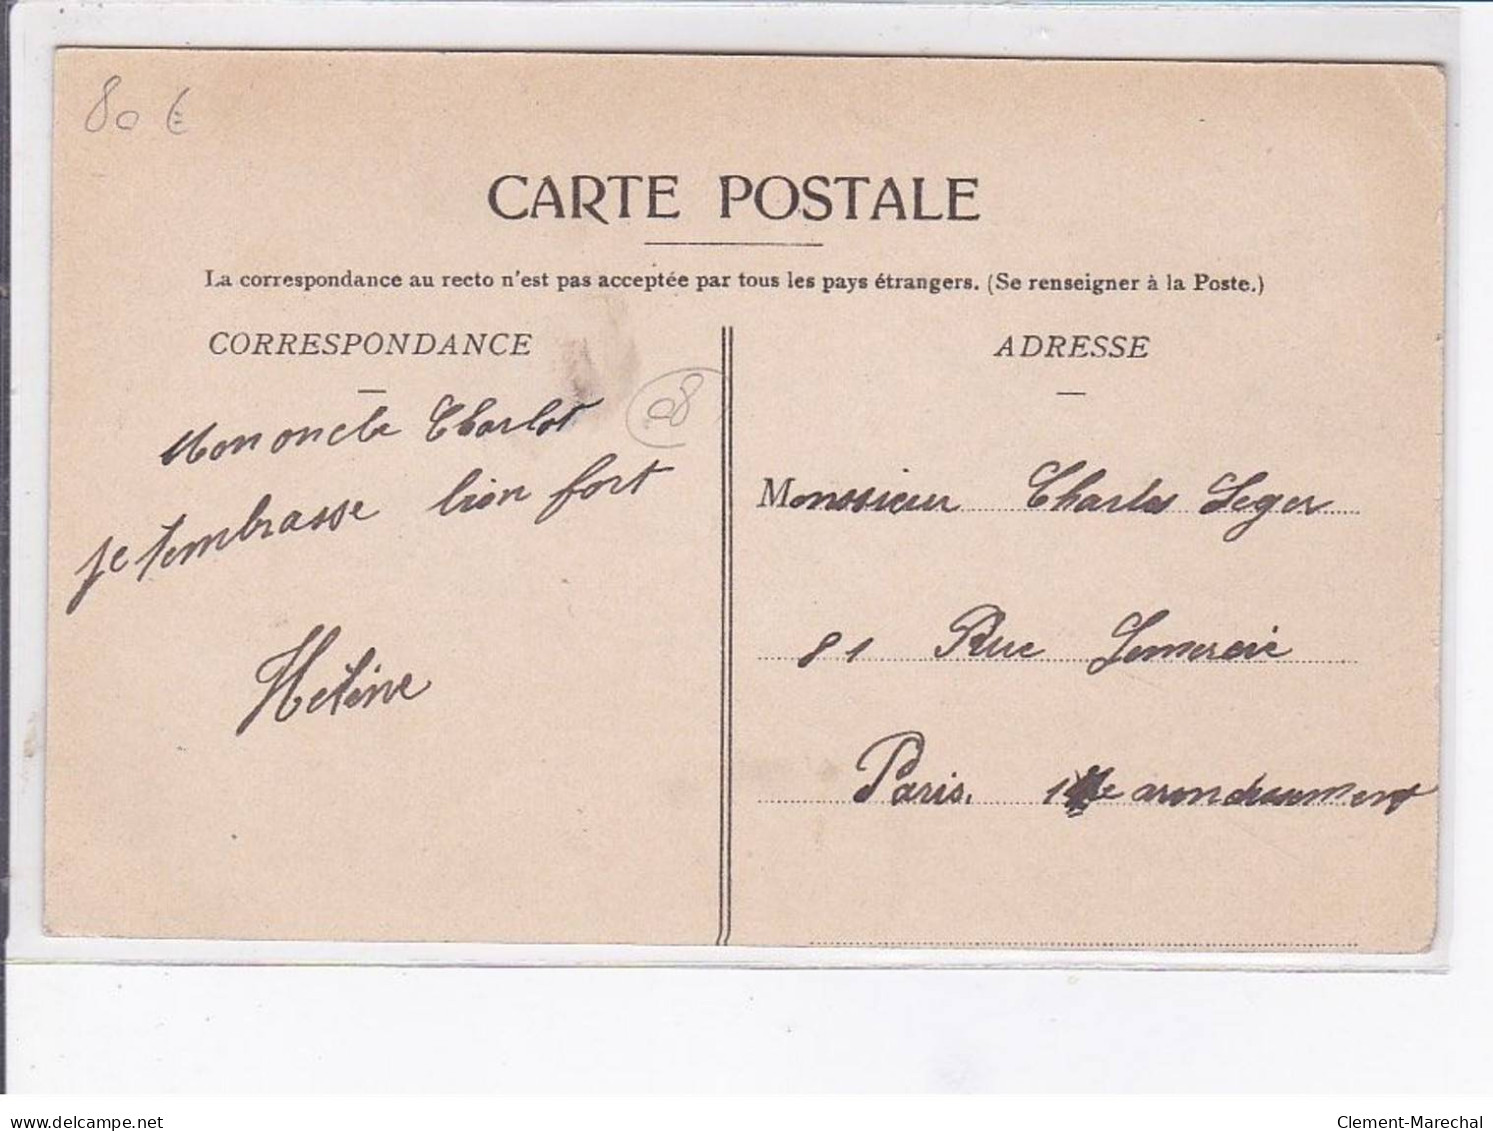 80 €
CARTE POSTALE
La correspondance au recto n'est pas acceptée par tous les pays étrangers. (Se renseigner à la Poste.)
CORRESPONDANCE
08
Mon oncle Charlot
je tembrasse bien fort
Hélène
ADRESSE
Monssieur Charles Leger
81 Rue
Paris. arondissement
delcampe.net
Clement-Marechal